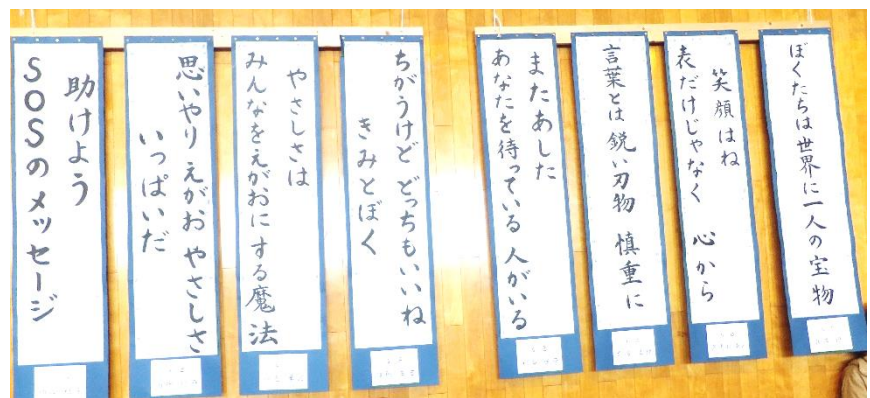 ぼくたちは世界に一人の宝物
笑顔はね
表だけじゃなく 心から
言葉とは 鋭い刃物 慎重に
またあした
あなたを待っている 人がいる
ちがうけど どっちもいいね
きみとぼく
やさしさは
みんなをえがおにする魔法
思いやり えがお やさしさ
いっぱいだ
助けよう
SOSのメッセージ